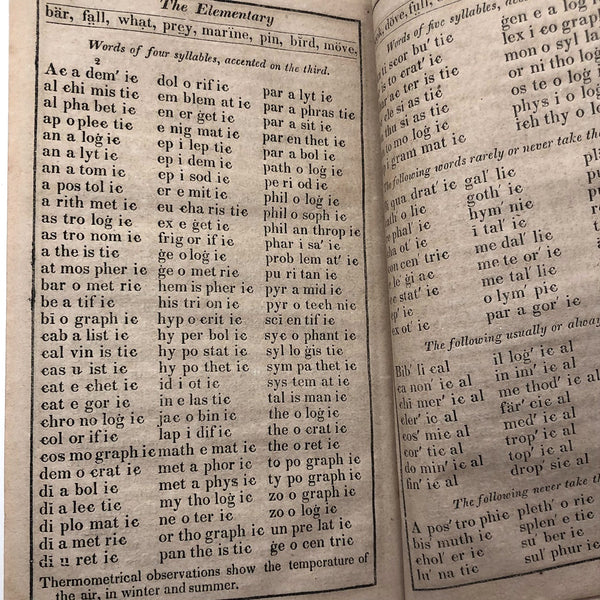 The Elementary
bär, fall, what, prey, marïne, pin, bïrd, möve,
Words of four syllables, accented on the third.
2
Ac a dem' ic
al chi mis tic
al pha bet ic
ap o plec tic
an a loġ ic
an a lyt ic
an a tom ic
a pos tol ic
a rith met ic
as tro loġ ic
as tro nom ic
a the is tic
at mos pher ic
bar o met ric
be a tif ic
bi o graph ic
cab a list ic
cal vin is tic
cas u ist ic
cat e chet ic
cat e gor ic
chro no loġ ic
col or if ic
cos mo graph ic
dem o crat ic
di a bol ic
di a lec tic
di plo mat ic
di a met ric
di u ret ic
dol o rif ic
em blem at ic
en er ġet ic
e nig mat ic
ep i lep tic
ep i dem ic
ep i sod ic
er e mit ic
eu cha ris tic
ex e ġet ic
frig or if ic
ġe o loġ ic
ġe o met ric
hem is pher ic
his tri on ic
hyp o crit ic
hy per bol ic
hy po stat ic
hy po thet ic
id i ot ic
in e las tic
jac o bin ic
lap i dif ic
math e mat ic
met a phor ic
met a phys ic
my tho loġ ic
ne o ter ic
or tho graph ic
pan the is tic
par a lyt ic
par a phras tic
par a sit ic
par en thet ic
par a bol ic
path o loġ ic
pe ri od ic
phil o loġ ic
phil o soph ic
phil an throp ic
phar i sa' ic
prob lem at' ic
pu ri tan ic
pyr a mid ic
pyr o tech nic
sci en tif ic
syc o phant ic
syl lo ġis tic
sym pa thet ic
sys tem at ic
tal is man ic
the o loġ ic
the o crat ic
the o ret ic
to po graph ic
ty po graph ic
zo o graph ic
zo o loġ ic
un pre lat ic
ġe o cen tric
Thermometrical observations show the temperature of
the air, in winter and summer.
döve, full,
Words of five syllables, ac
ti scor bu' tic
is to crat' ic
ac ter is tic
cle si as tic
thu si as tic
to mo loġ ic
i gram mat ic
ġen e a log
lex i co graph
mon o syl la
or ni tho loġ
os te o loġ
phys i o log
ich thy o loġ
The following words rarely or never take the
qua drat' ic
th o lic
phal' ic
ha ot' ic
con cen tric
e le' ġi ac
ec stat' ic
ep' ic
ex ot' ic
gal' lic
goth' ic
hym' nic
i tal' ic
me dal' lic
me te or' ic
me tal' lic
o lym' pic
pa ra gor' ic
The following usually or alway
Bib' li cal
ca non' ic al
chi mer' ic al
cler' ic al
cos' mic al
cor' tic al
do min' ic al
fin' ic al
il loġ' ic al
in im' ic al
me thod' ic al
fär' cic al
med' ic al
trop' ic al
top' ic al
drop' sic al
The following never take th
A pos' tro phic
bis' muth ic
chol' er ic
lu' na tic
pleth' o ric
splen' e tic
su' ber ic
sul' phur ic